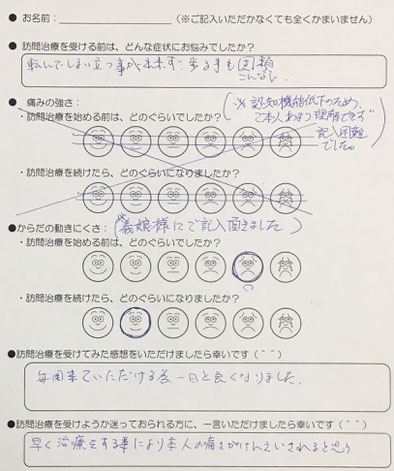 ● お名前：____________________ （※ご記入いただかなくても全くかまいません）
● 訪問治療を受ける前は、どんな症状にお悩みでしたか？
転んでしまい立つ事が出来ず
● 痛みの強さ：
（※認知機能低下のため、
ご本人あまり理解できず
記入困難
でした。）
・訪問治療を始める前は、どのぐらいでしたか？
・訪問治療を続けたら、どのぐらいになりましたか？
●からだの動きにくさ：（※義娘様にご記入頂きました）
・訪問治療を始める前は、どのぐらいでしたか？
・訪問治療を続けたら、どのぐらいになりましたか？
●訪問治療を受けてみた感想をいただけましたら幸いです（＾＾）
毎回来ていただける為一日と良くなりました。
●訪問治療を受けようか迷っておられる方に、一言いただけましたら幸いです（＾＾）
早く治療をする事により本人の痛さがけんげんいされると思う